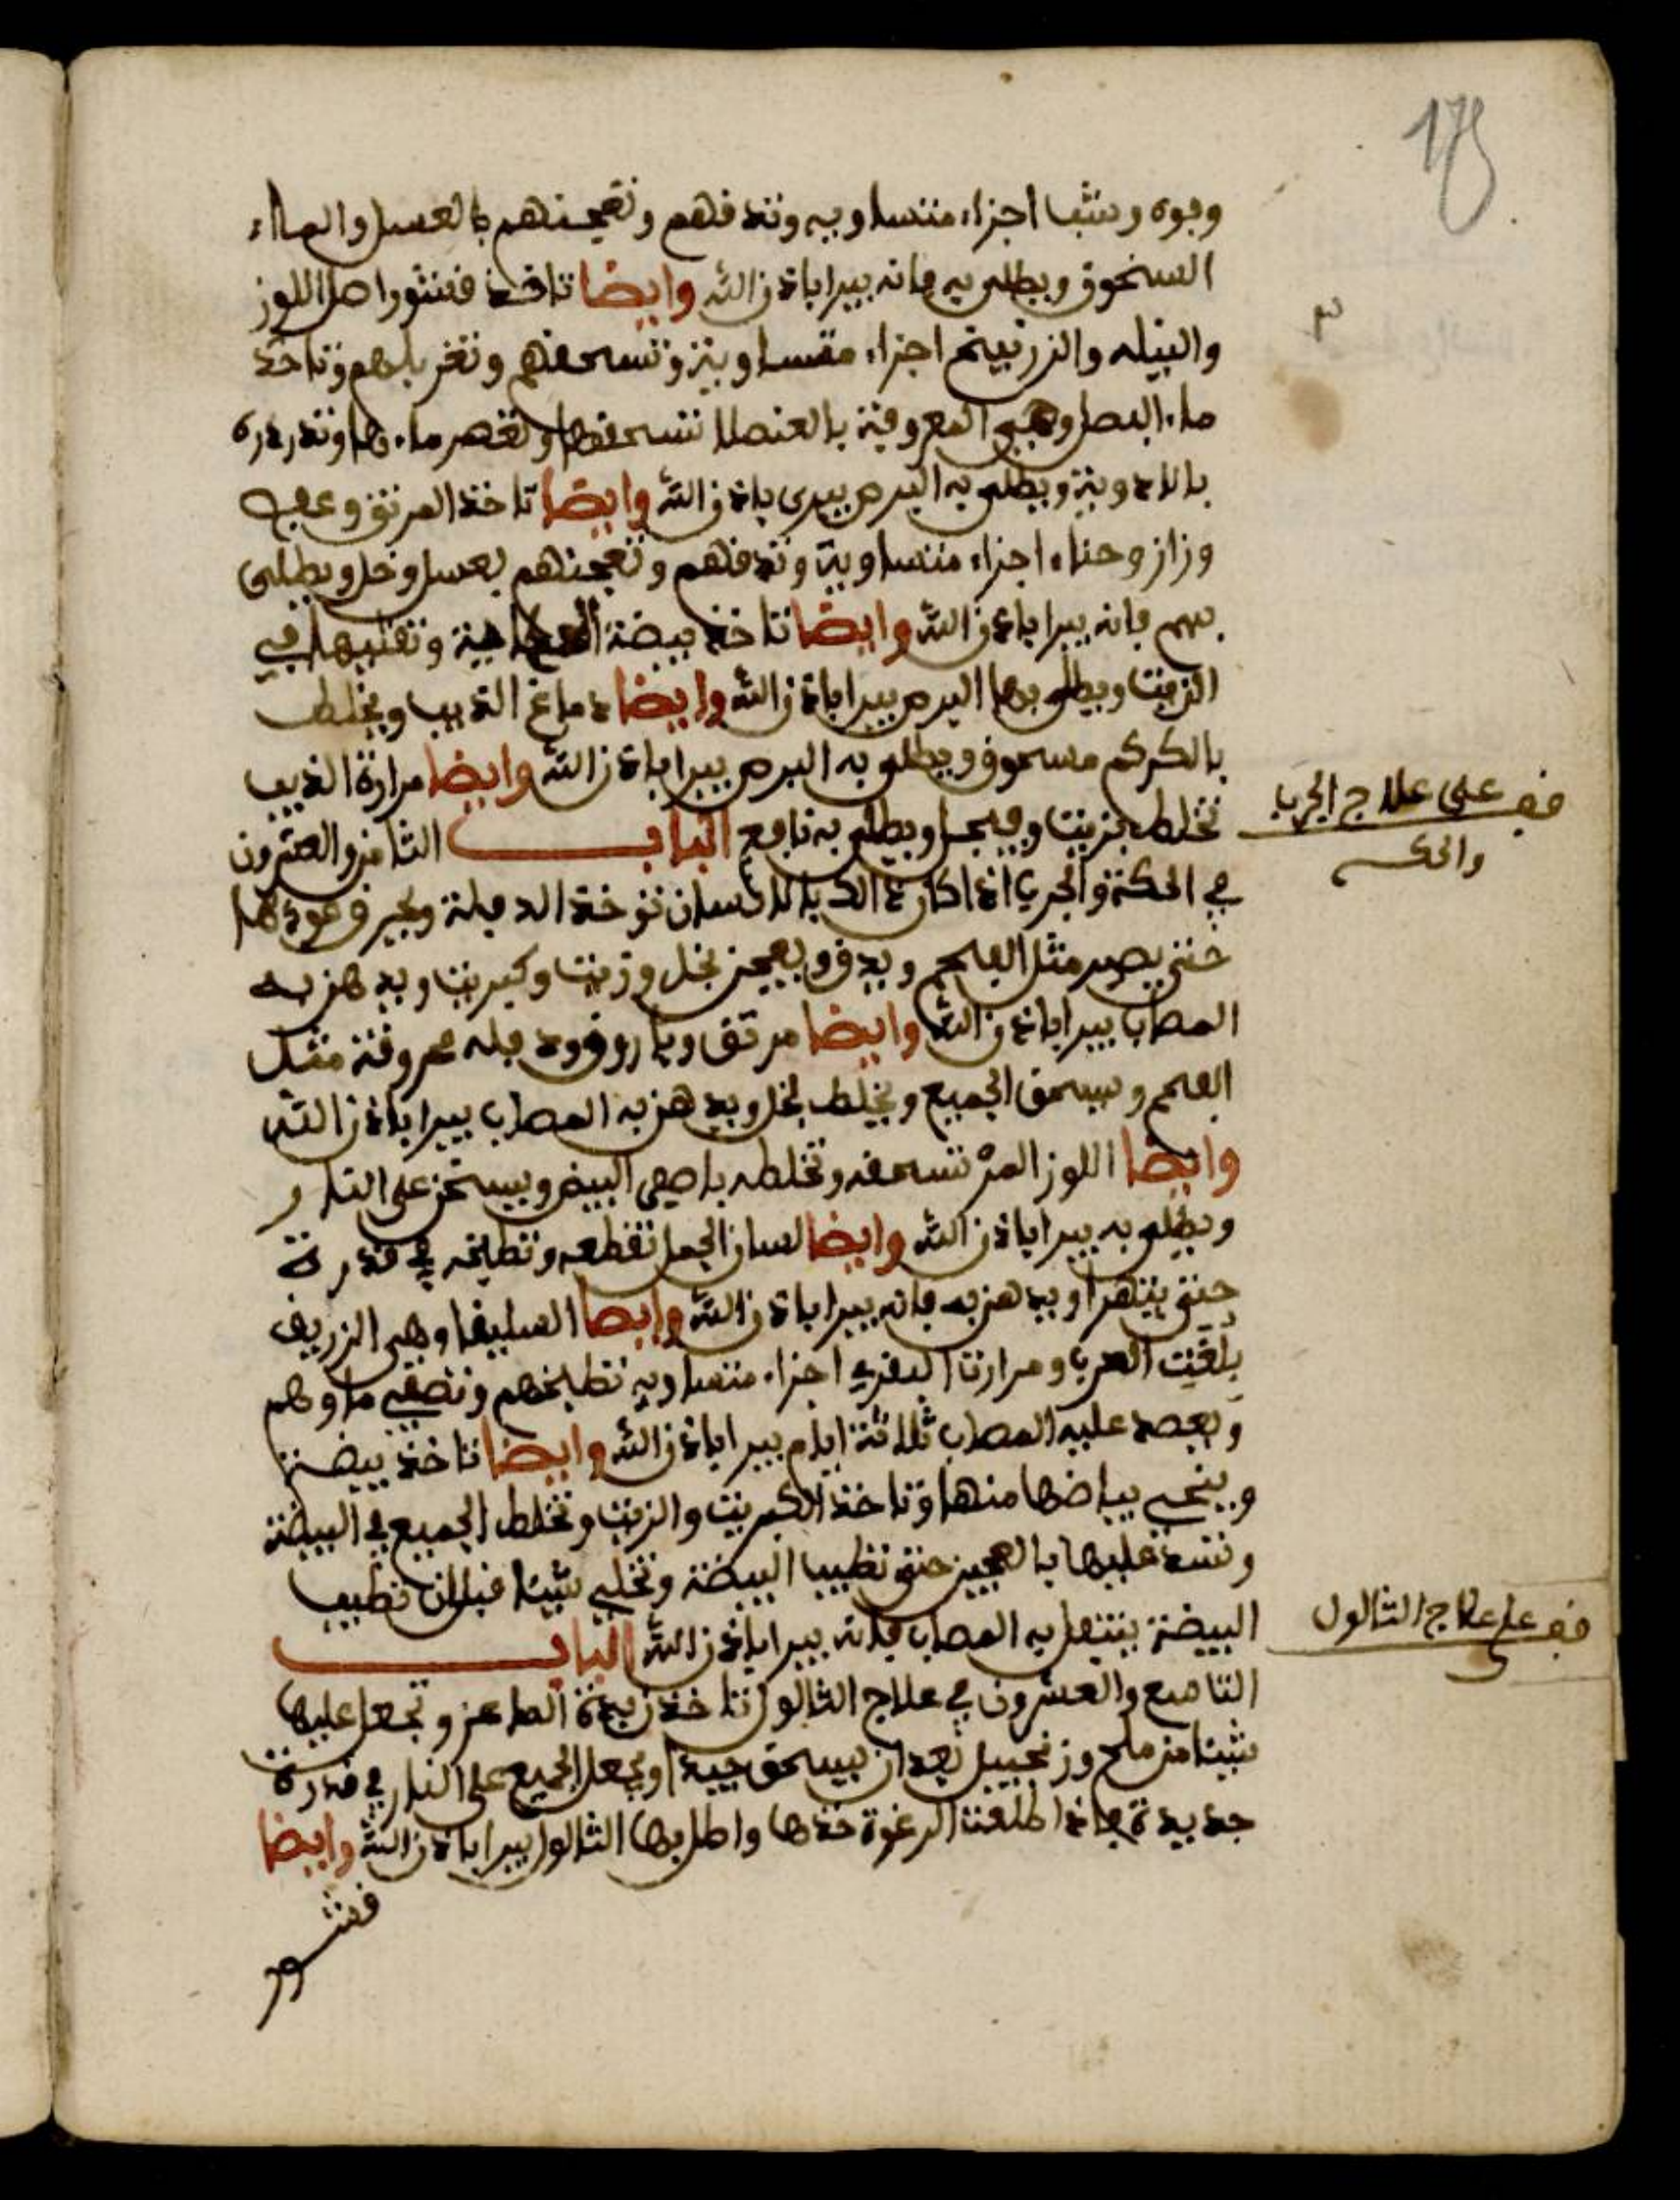 175
وفوه وشبا اجزاء متساويه وتدقهم وتعجنهم بالعسل والماء
السخون ويطلى به فانه يبرا باذن الله وايضا تاخذ قشور اصل اللوز
والنيله والزرنيخ اجزاء متساوية وتسحقهم وتغربلهم وتاخذ
ماء البصل وهي المعروفة بالعنصل تسحقها وتعصر ماءها وتدردره
بالادوية ويطلى به البرص يبرى باذن الله وايضا تاخذ المرتق وعفصه
وزاز وحناء اجزاء متساوية وتدقهم وتعجنهم بعسل وخل ويطلى
بهم فانه يبرا باذن الله وايضا تاخذ بيضة وتقليها في
الزيت ويطلى بها البرص يبرا باذن الله وايضا دماغ الذيب ويخلط
بالكركم مسحوق ويطلى به البرص يبرا باذن الله وايضا مرارة الذيب
تخلط بزيت وفيجل ويطلى به نافع الباب الثامن والعشرون
في الحكة والجرب اذا كان ذالك بالانسان توخذ الدفلة ويحرق عودها
حتى يصير مثل الفحم ويدق ويعجن بخل وزيت وكبريت ويدهن به
المصاب يبرا باذن الله وايضا مرتق وباروق ودفله محروقة مثل
الفحم ويسحق الجميع ويخلط بخل ويدهن به المصاب يبرا باذن الله
وايضا اللوز المر تسحقه وتخلطه باصفى البيض ويسخن على النار
ويطلى به يبرا باذن الله وايضا لسان الجمل تقطعه وتطبخه في قدرة
حتى يتهرا ويدهن به فانه يبرا باذن الله وايضا السليفا وهي الزريف
بلغت العرب ومرارت البقري اجزاء متساويه تطبخهم وتصفي ماوهم
ويعصد عليه المصاب ثلاثة ايام يبرا باذن الله وايضا تاخذ بيضة
وينحي بياضها منها وتاخذ الكبريت والزيت وتخلط الجميع في البيضة
وتسد عليها بالعجين حتى تطيب البيضة وتخلي شيئا قبل ان تطيب
البيضة ينتعل به المصاب فانه يبرا باذن الله الباب
التاسع والعشرون في علاج الثالول تاخذ زبدة الماعز وتجعل عليها
شيئا من ملح وزنجبيل بعد ان يسحق جيدا ويجعل الجميع على النار في قدرة
جديدة فاذا طلعت الرغوة خذها واطل بها الثالول يبرا باذن الله وايضا
قشور
قف على علاج الجرب
والحك
قف على علاج الثالول